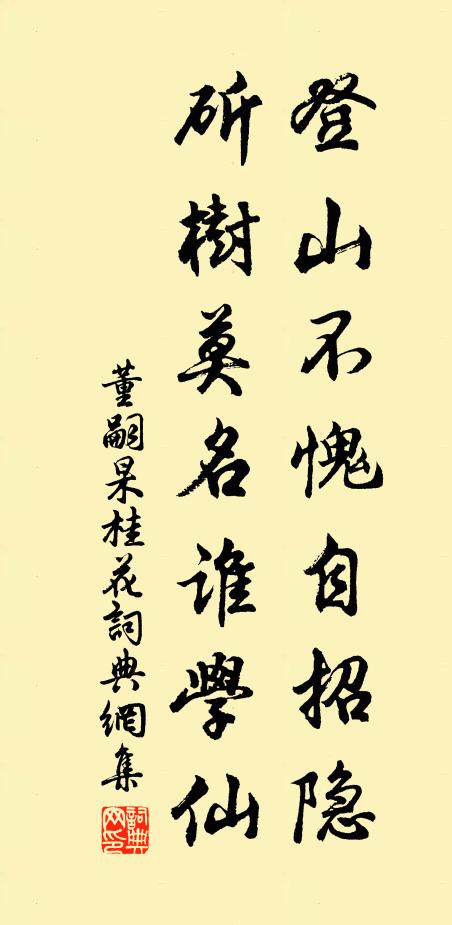 登山不愧自招隐
斫樹莫名谁學仙
董嗣杲桂花詞典網集
詞典網印